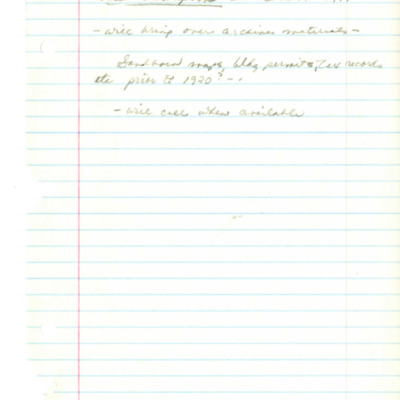 - will bring over archives materials -
Sandborn maps, bldg permits, Tax records
etc prior to 1920? - .
- will call when available